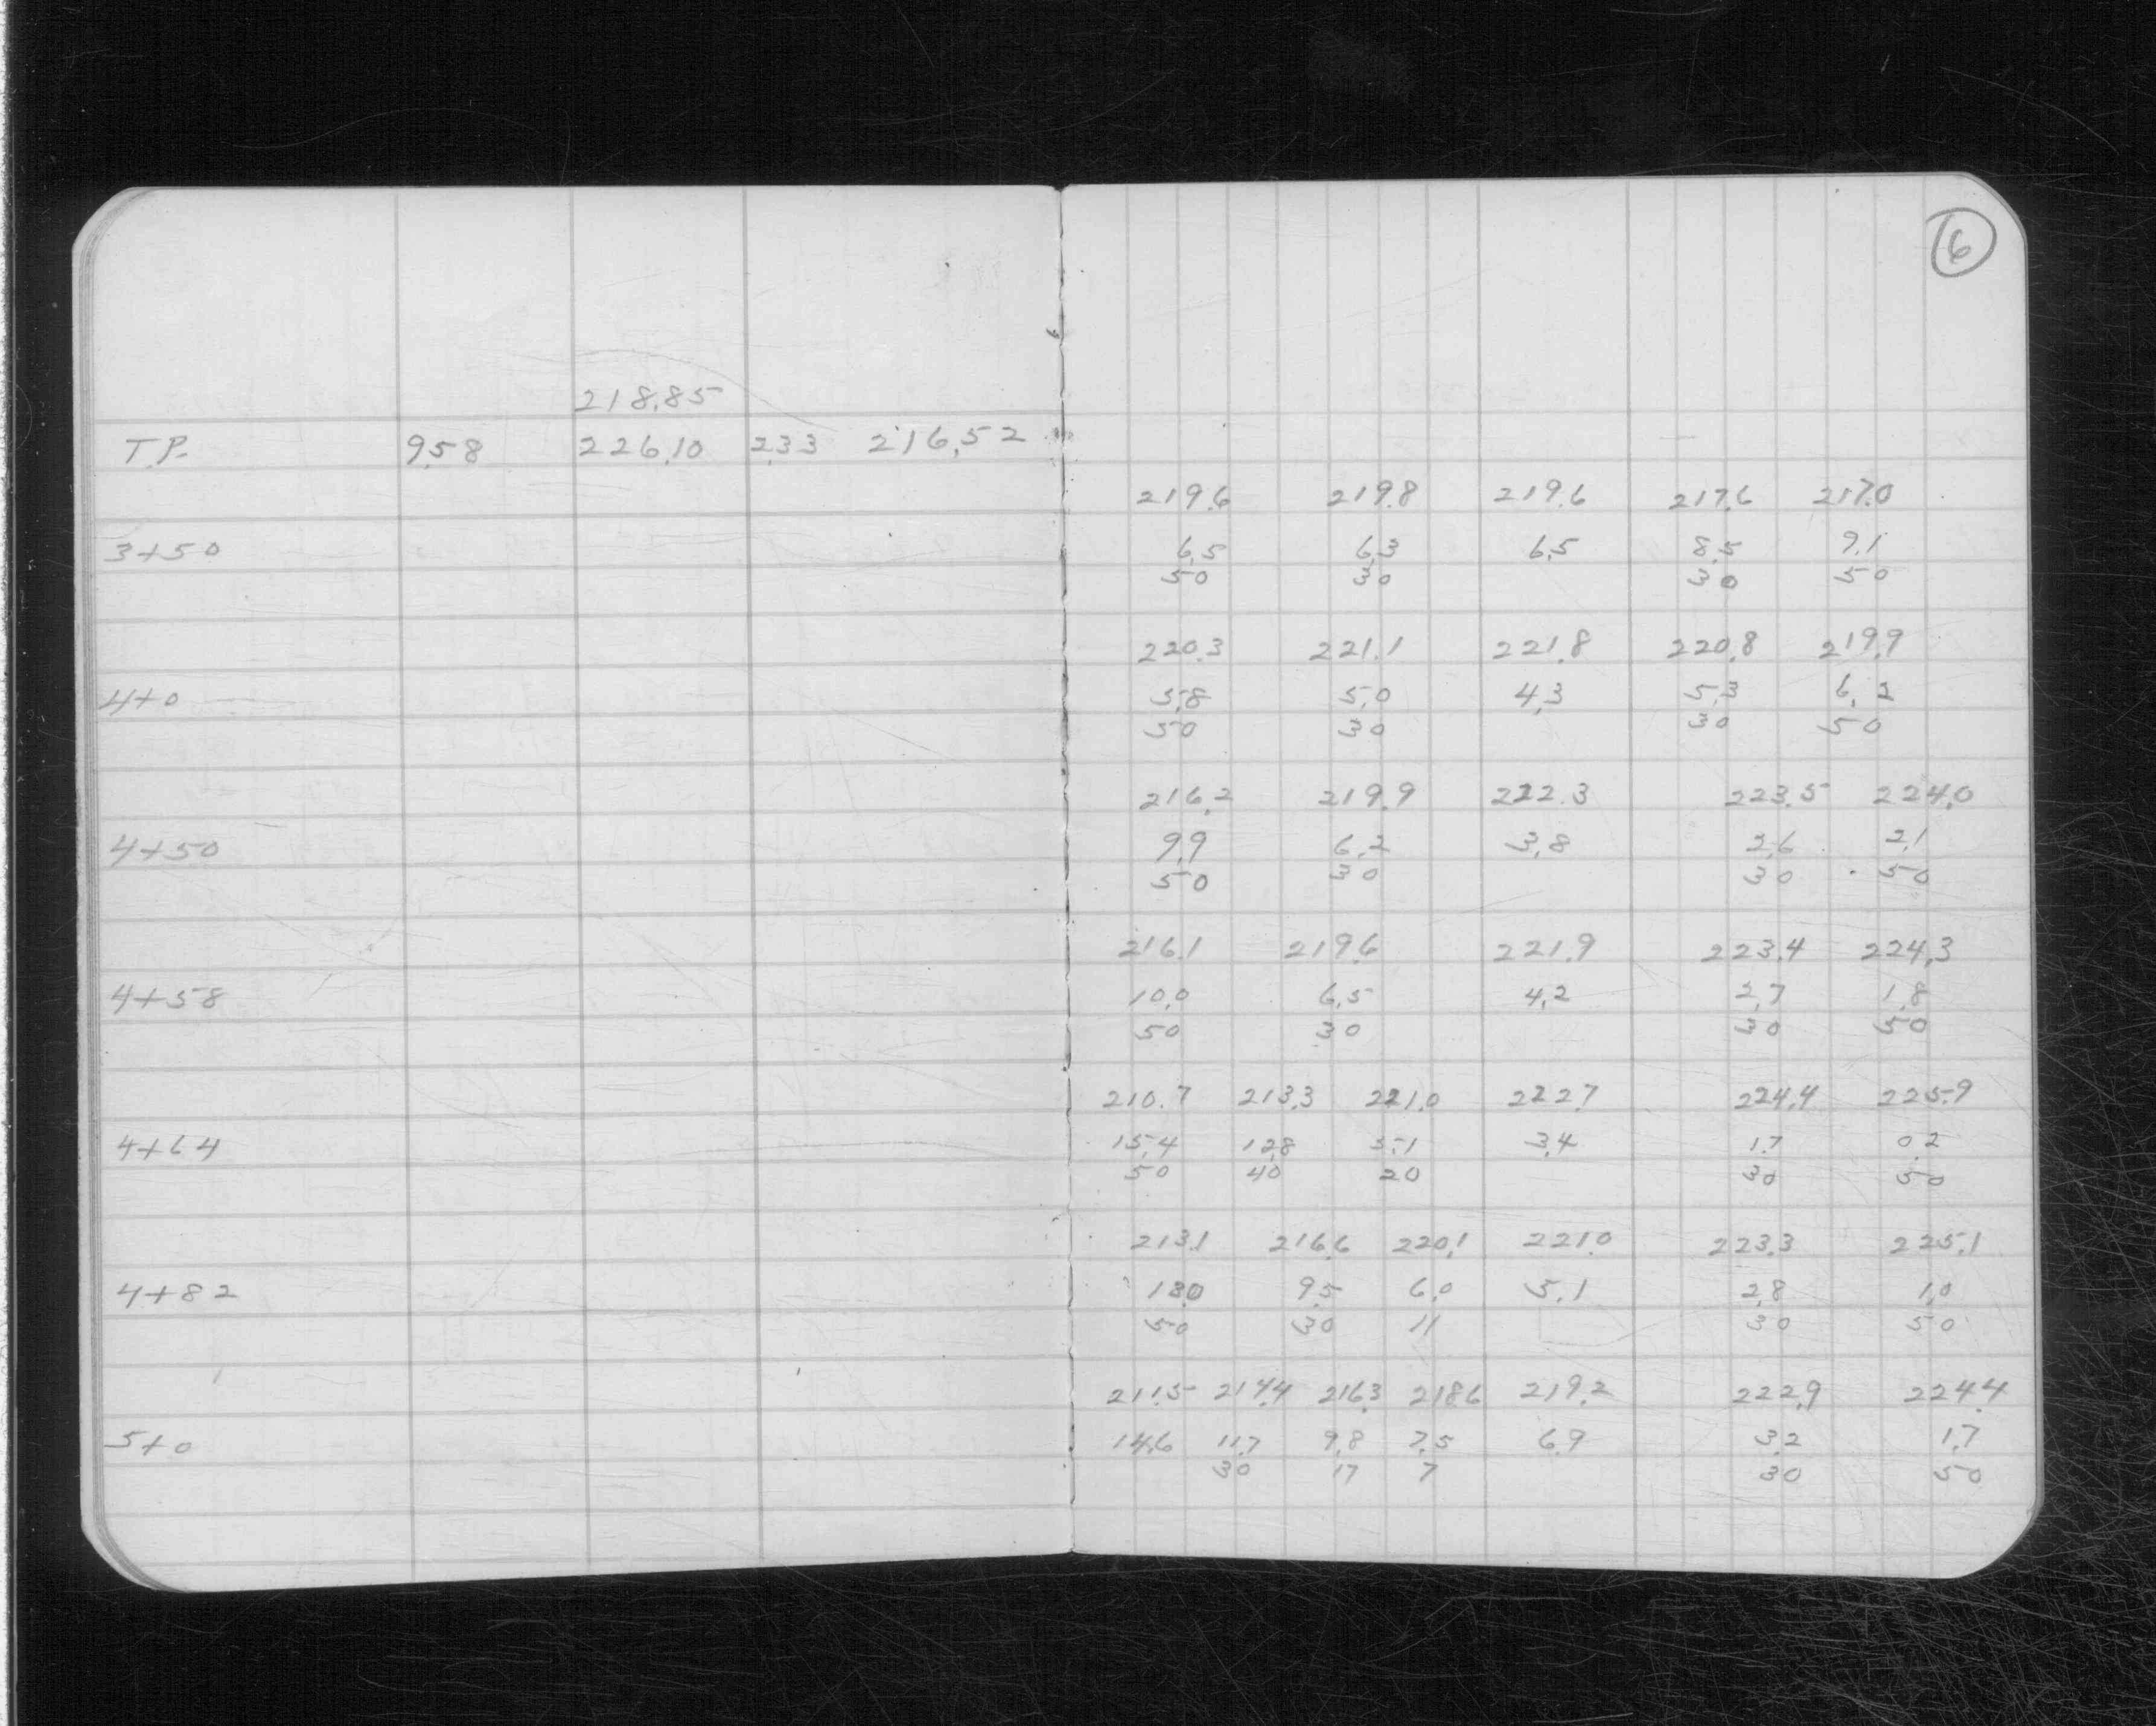 6
218.85
T.P. 9.58 226.10 2.33 216.52
219.6 219.8 219.6 217.6 217.0
3+50 6.5 6.3 6.5 8.5 9.1
50 30 30 50
220.3 221.1 221.8 220.8 219.9
4+0 5.8 5.0 4.3 5.3 6.2
50 30 30 50
216.2 219.9 222.3 223.5 224.0
4+50 9.9 6.2 3.8 2.6 2.1
50 30 30 50
216.1 219.6 221.9 223.4 224.3
4+58 10.0 6.5 4.2 2.7 1.8
50 30 30 50
210.7 213.3 221.0 222.7 224.4 225.9
4+64 15.4 12.8 5.1 3.4 1.7 0.2
50 40 20 30 50
213.1 216.6 220.1 221.0 223.3 225.1
4+82 13.0 9.5 6.0 5.1 2.8 1.0
50 30 11 30 50
211.5 214.4 216.3 218.6 219.2 222.9 224.4
5+0 14.6 11.7 9.8 7.5 6.9 3.2 1.7
30 17 7 30 50